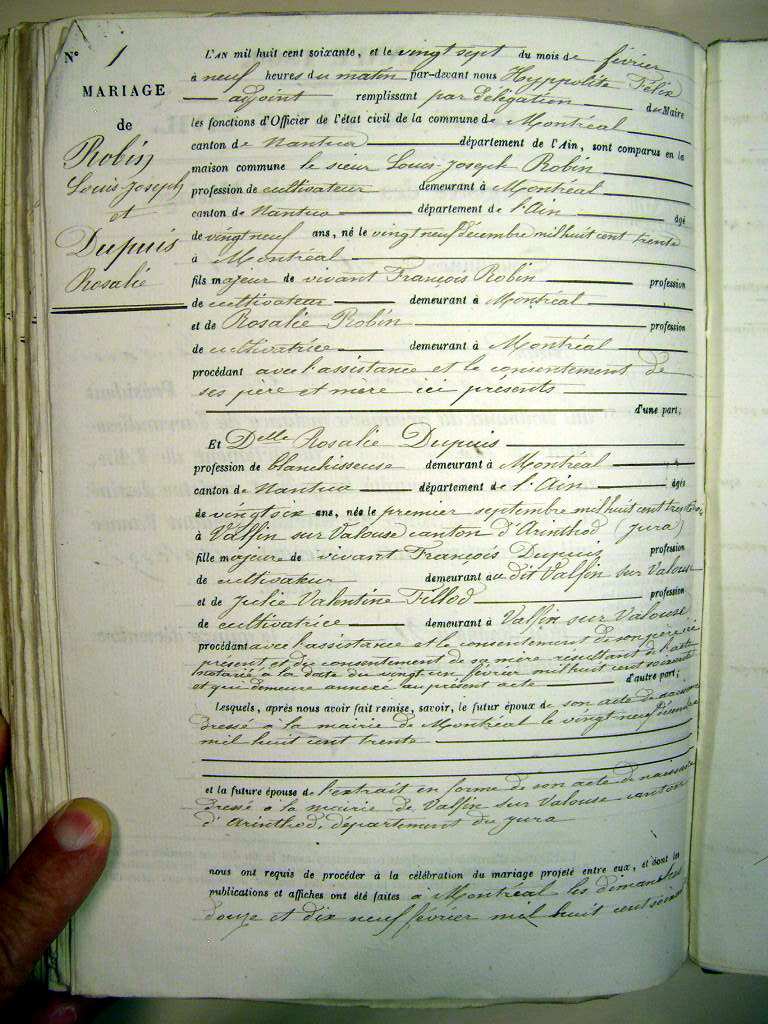 N° 1
MARIAGE
de
Robin
Louis Joseph
et
Dupuis
Rosalie
L'AN mil huit cent soixante, et le vingt sept du mois de février
à neuf heures du matin par-devant nous Hyppolite Félix
adjoint remplissant par délégation du Maire
les fonctions d'Officier de l'état civil de la commune de Montréal
canton de Nantua département de l'Ain, sont comparus en la
maison commune le sieur Louis Joseph Robin
profession de cultivateur demeurant à Montréal
canton de Nantua département de l'Ain âgé
de vingt neuf ans, né le vingt neuf décembre mil huit cent trente
à Montréal
fils majeur de vivant François Robin profession
de cultivateur demeurant à Montréal
et de Rosalie Robin profession
de cultivatrice demeurant à Montréal
procédant avec l'assistance et le consentement de
ses père et mère ici présents
d'une part;
Et Delle Rosalie Dupuis
profession de blanchisseuse demeurant à Montréal
canton de Nantua département de l'Ain âgée
de vingt six ans, née le premier septembre mil huit cent trente
à Valfin sur Valouse canton d'Arinthod (Jura)
fille majeure de vivant François Dupuis profession
de cultivateur demeurant au dit Valfin sur Valouse
et de Julie Valentine Tillod profession
de cultivatrice demeurant à Valfin sur Valouse
procédant avec l'assistance et le consentement de son père ici
présent et du consentement de sa mère résultant d'acte
notarié à la date du vingt un février mil huit cent soixante
et qui demeure annexé au présent acte d'autre part;
Lesquels, après nous avoir fait remise, savoir, le futur époux de son acte de naissance
dressé à la mairie de Montréal le vingt neuf décembre
mil huit cent trente
et la future épouse de l'extrait en forme de son acte de naissance
dressé à la mairie de Valfin sur Valouse canton
d'Arinthod, département du Jura
nous ont requis de procéder à la célébration du mariage projeté entre eux, et dont les
publications et affiches ont été faites à Montréal les dimanches
douze et dix neuf février mil huit cent soixante